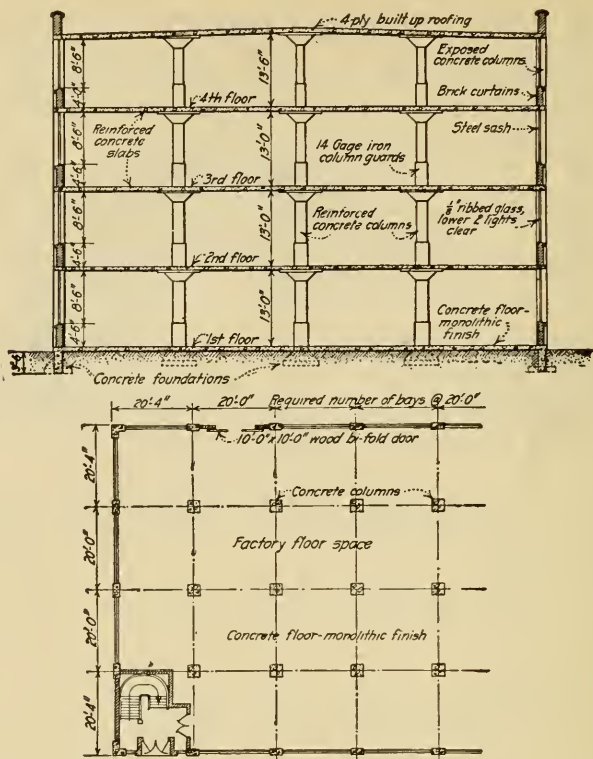 4-ply built up roofing
8'-6"
13'-6"
Exposed
concrete columns
4'-0"
4th floor
Brick curtains
Reinforced
concrete
slabs
8'-6"
13'-0"
14 Gage iron
column guards
Steel sash
4'-6"
3rd floor
8'-6"
13'-0"
Reinforced
concrete columns
1/8" ribbed glass,
lower 2 lights
clear
4'-6"
2nd floor
8'-6"
13'-0"
Concrete floor-
monolithic
finish
4'-6"
1st floor
Concrete foundations
20'-4" 20'-0" Required number of bays @ 20'-0"
10'-0" x 10'-0" wood bi-fold door
20'-4"
Concrete columns
20'-0"
Factory floor space
20'-0"
Concrete floor-monolithic finish
20'-4"